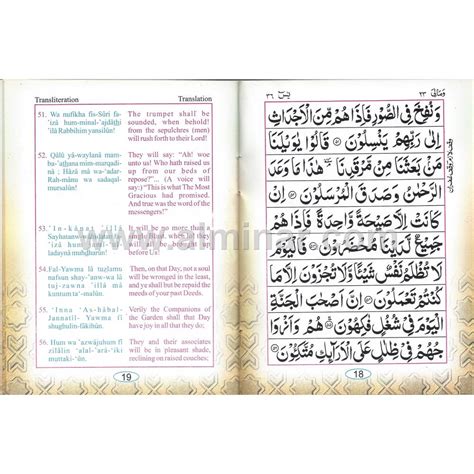 Transliteration Translation
51. Wa nufikha fis-Sûri fa-
'izâ hum-minal-'ajdâthi
'ilâ Rabbihim yansilûn!
The trumpet shall be
sounded, when behold!
from the sepulchres (men)
will rush forth to their Lord!
52. Qâlû yâ-waylanâ mam-
ba-'athana mim-marqadi-
nâ; Hâzâ mâ wa-'adar-
Rah-mânu wa sadaqal-
mursalûn!
They will say: "Ah! woe
unto us! Who hath raised
us up from our beds of
repose?"... (A voice will
say:) "This is what The Most
Gracious had promised.
And true was the word of the
messengers!"
before Us!
54. Fal-Yawma lâ tuzlamu
nafsun shay-'anw-wa
lâ tuj-zawna 'illâ mâ
kuntum ta'-malûn.
Then, on that Day, not a soul
will be wronged in the least,
and ye shall but be repaid the
meeds of your past Deeds.
55. 'Inna 'As-hâbal-
Jannatil- Yawma fî
shughulin-fâkihûn.
Verily the Companions of
the Garden shall that Day
have joy in all that they do;
56. Hum wa 'azwâjuhum fî
zilâlin 'alal-'arâ-'iki
muttaki-'ûn.
They and their associates
will be in pleasant shade,
reclining on raised couches;
19
يٰسٓ ٣٦
ومالى ٢٣
وَنُفِخَ فِى الصُّوْرِ فَاِذَا هُمْ مِّنَ الْاَجْدَاثِ
اِلٰى رَبِّهِمْ يَنْسِلُوْنَ قَالُوْا يٰوَيْلَنَا
مَنْۢ بَعَثَنَا مِنْ مَّرْقَدِنَا هٰذَا مَا وَعَدَ
الرَّحْمٰنُ وَصَدَقَ الْمُرْسَلُوْنَ اِنْ
كَانَتْ اِلَّا صَيْحَةً وَّاحِدَةً فَاِذَا هُمْ
جَمِيْعٌ لَّدَيْنَا مُحْضَرُوْنَ فَالْيَوْمَ
لَا تُظْلَمُ نَفْسٌ شَيْـًٔا وَّلَا تُجْزَوْنَ اِلَّا مَا
كُنْتُمْ تَعْمَلُوْنَ اِنَّ اَصْحٰبَ الْجَنَّةِ
الْيَوْمَ فِىْ شُغُلٍ فٰكِهُوْنَ هُمْ وَاَزْوَا
جُهُمْ فِىْ ظِلٰلٍ عَلَى الْاَرَآئِكِ مُتَّكِـُٔوْنَ
18
www.alminar.com